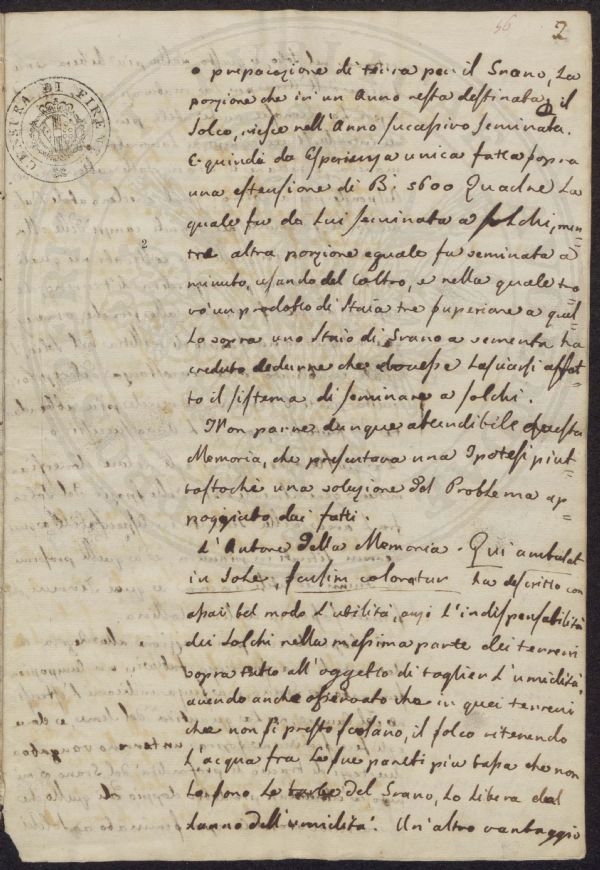 56 2
o preparazione di terra per il Grano, La
porzione che in un Anno resta destinata p il
Solco, viese nell'Anno successivo seminata.
E quindi da Esperienza unica fatta sopra
una estensione di B: 5600 Quadre La
quale fu da Lui seminata a solchi, men=
tre altra porzione eguale fu seminata a
minuto, usando del Coltro, e nella quale tro=
vò un prodotto di Staia tre superiore a quel=
lo sopra uno Staio di Grano a sementa ha
creduto dedurne che dovesse Lasciarsi affat=
to il sistema di seminare a solchi.
Non parve dunque attendibile questa
Memoria, che presentava una Ipotesi piut=
tostochè una soluzione del Problema ap=
poggiato dai fatti.
L'Autore Della Memoria - Qui ambulat
in Sole, facilim coloratur ha descritto con
assai bel modo L'utilità, anzi L'indispensabilità
dei Solchi nella massima parte dei terreni
sopra tutto all'oggetto di toglier L'umidità,
avendo anche osservato che in quei terreni
che non si presto scolano, il solco ritenendo
L'acqua fra Le sue pareti piu basse che non
Lo sono Le barbe del Grano, Lo Libera dal
danno dell'umidità. Un'altro vantaggio
2
CENSURA DI FIRENZE